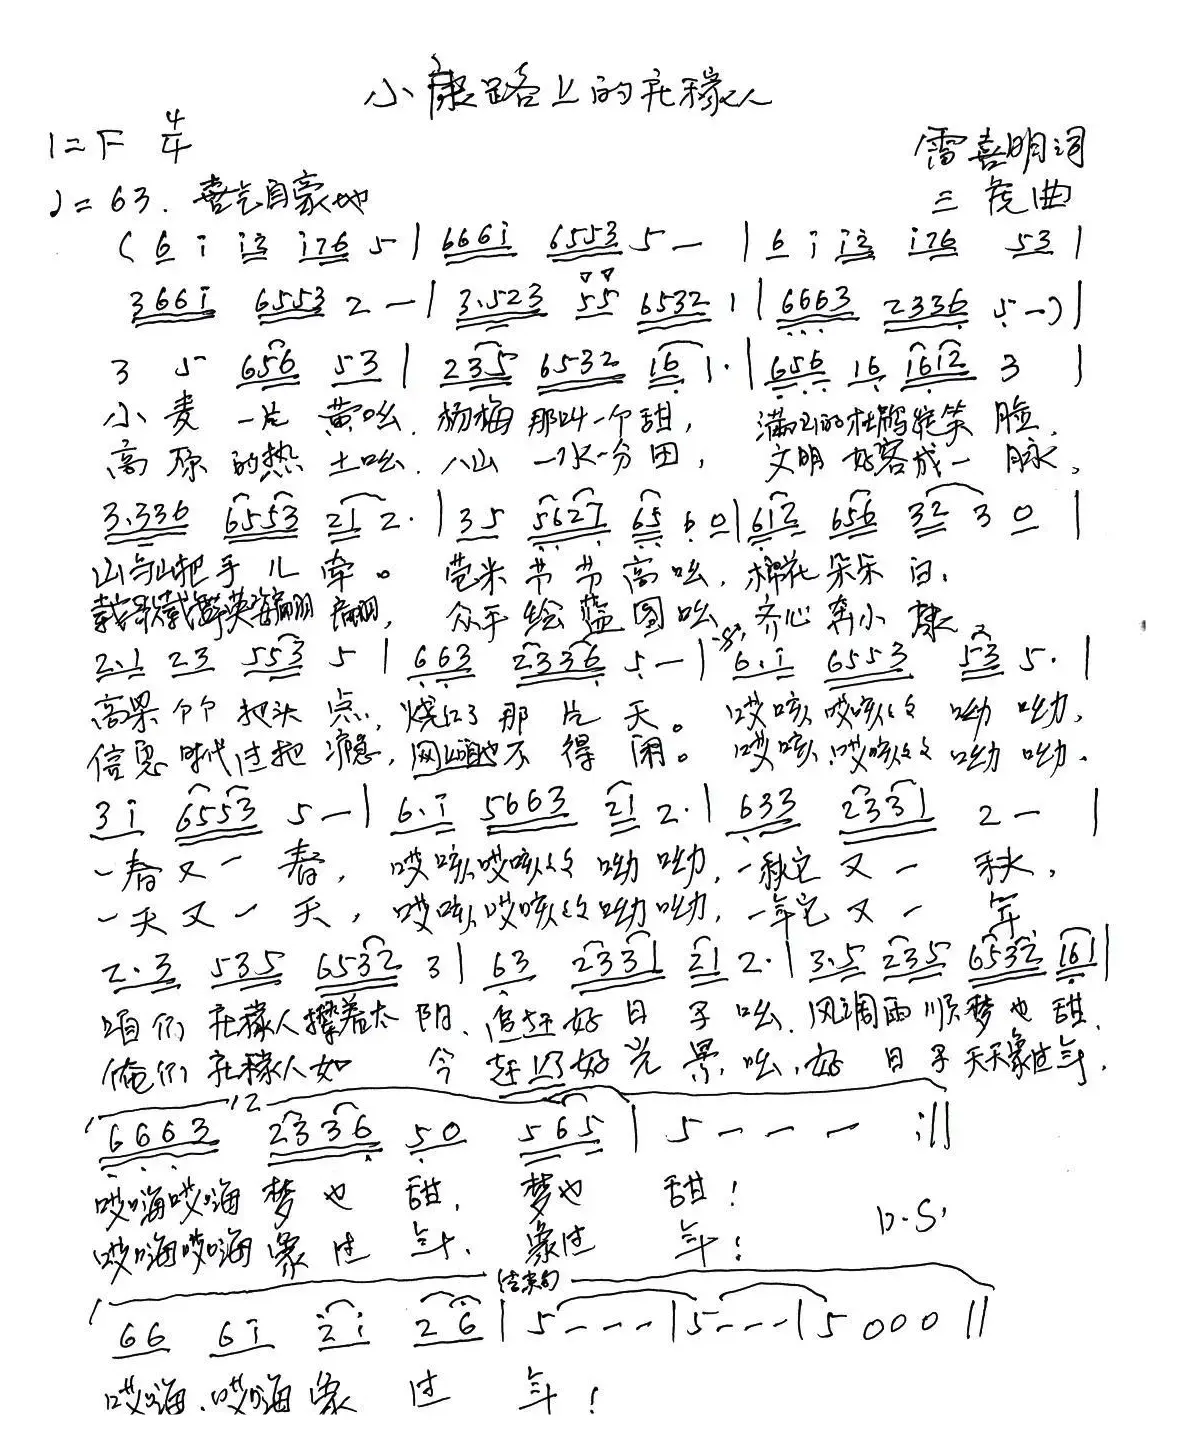 小康路上的庄稼人
1=F 4/4
雷喜明词
♩=63. 喜气自豪地
三虎曲
(6 i i3 i76 5 | 666i 6553 5 — | 6 i i3 i76 53 |
366i 6553 2 — | 3.523 55 6532 1 | 6663 2336 5 —) |
3 5 656 53 | 235 6532 16 1. | 656 16 1612 3 |
小麦一片黄吆.杨梅那叫一个甜,满山的杜鹃绽笑脸.
高原的热土吆.八山一水一分田,文明好客成一脉,
3.336 6553 21 2. | 35 5627 65 6 0 | 612 656 32 3 0 |
山与山把手儿牵。苞米节节高吆,棉花朵朵白,
载歌载舞英姿翩翩,众手绘蓝图吆,齐心奔小康
2.1 23 553 5 | 663 2336 5 — | 6.i 6553 53 5. |
高粱个个把头点,烧红了那片天。哎咳哎咳 呦呦,
信息时代过把瘾,网上咱也不得闲。哎咳.哎咳 呦呦.
3i 6553 5 — | 6.i 5663 21 2. | 633 2331 2 — |
一春又一春,哎咳哎咳 呦呦,一秋它又一秋,
一天又一天,哎咳哎咳 呦呦,一年它又一年
2.3 535 6532 3 | 63 2331 21 2. | 3.5 235 6532 161 |
咱们庄稼人攆着太阳.追赶好日子吆.风调雨顺梦也甜.
俺们庄稼人如今赶上了好光景吆.好日子天天象过年.
12
6663 2336 50 565 | 5 — — — :||
哎嗨哎嗨梦也甜.梦也甜!
哎嗨哎嗨象过年.象过年!
D.S.
结束句
66 6i 2i 26 | 5 — — — | 5 — — — | 5 0 0 0 ||
哎嗨.哎嗨象过年!